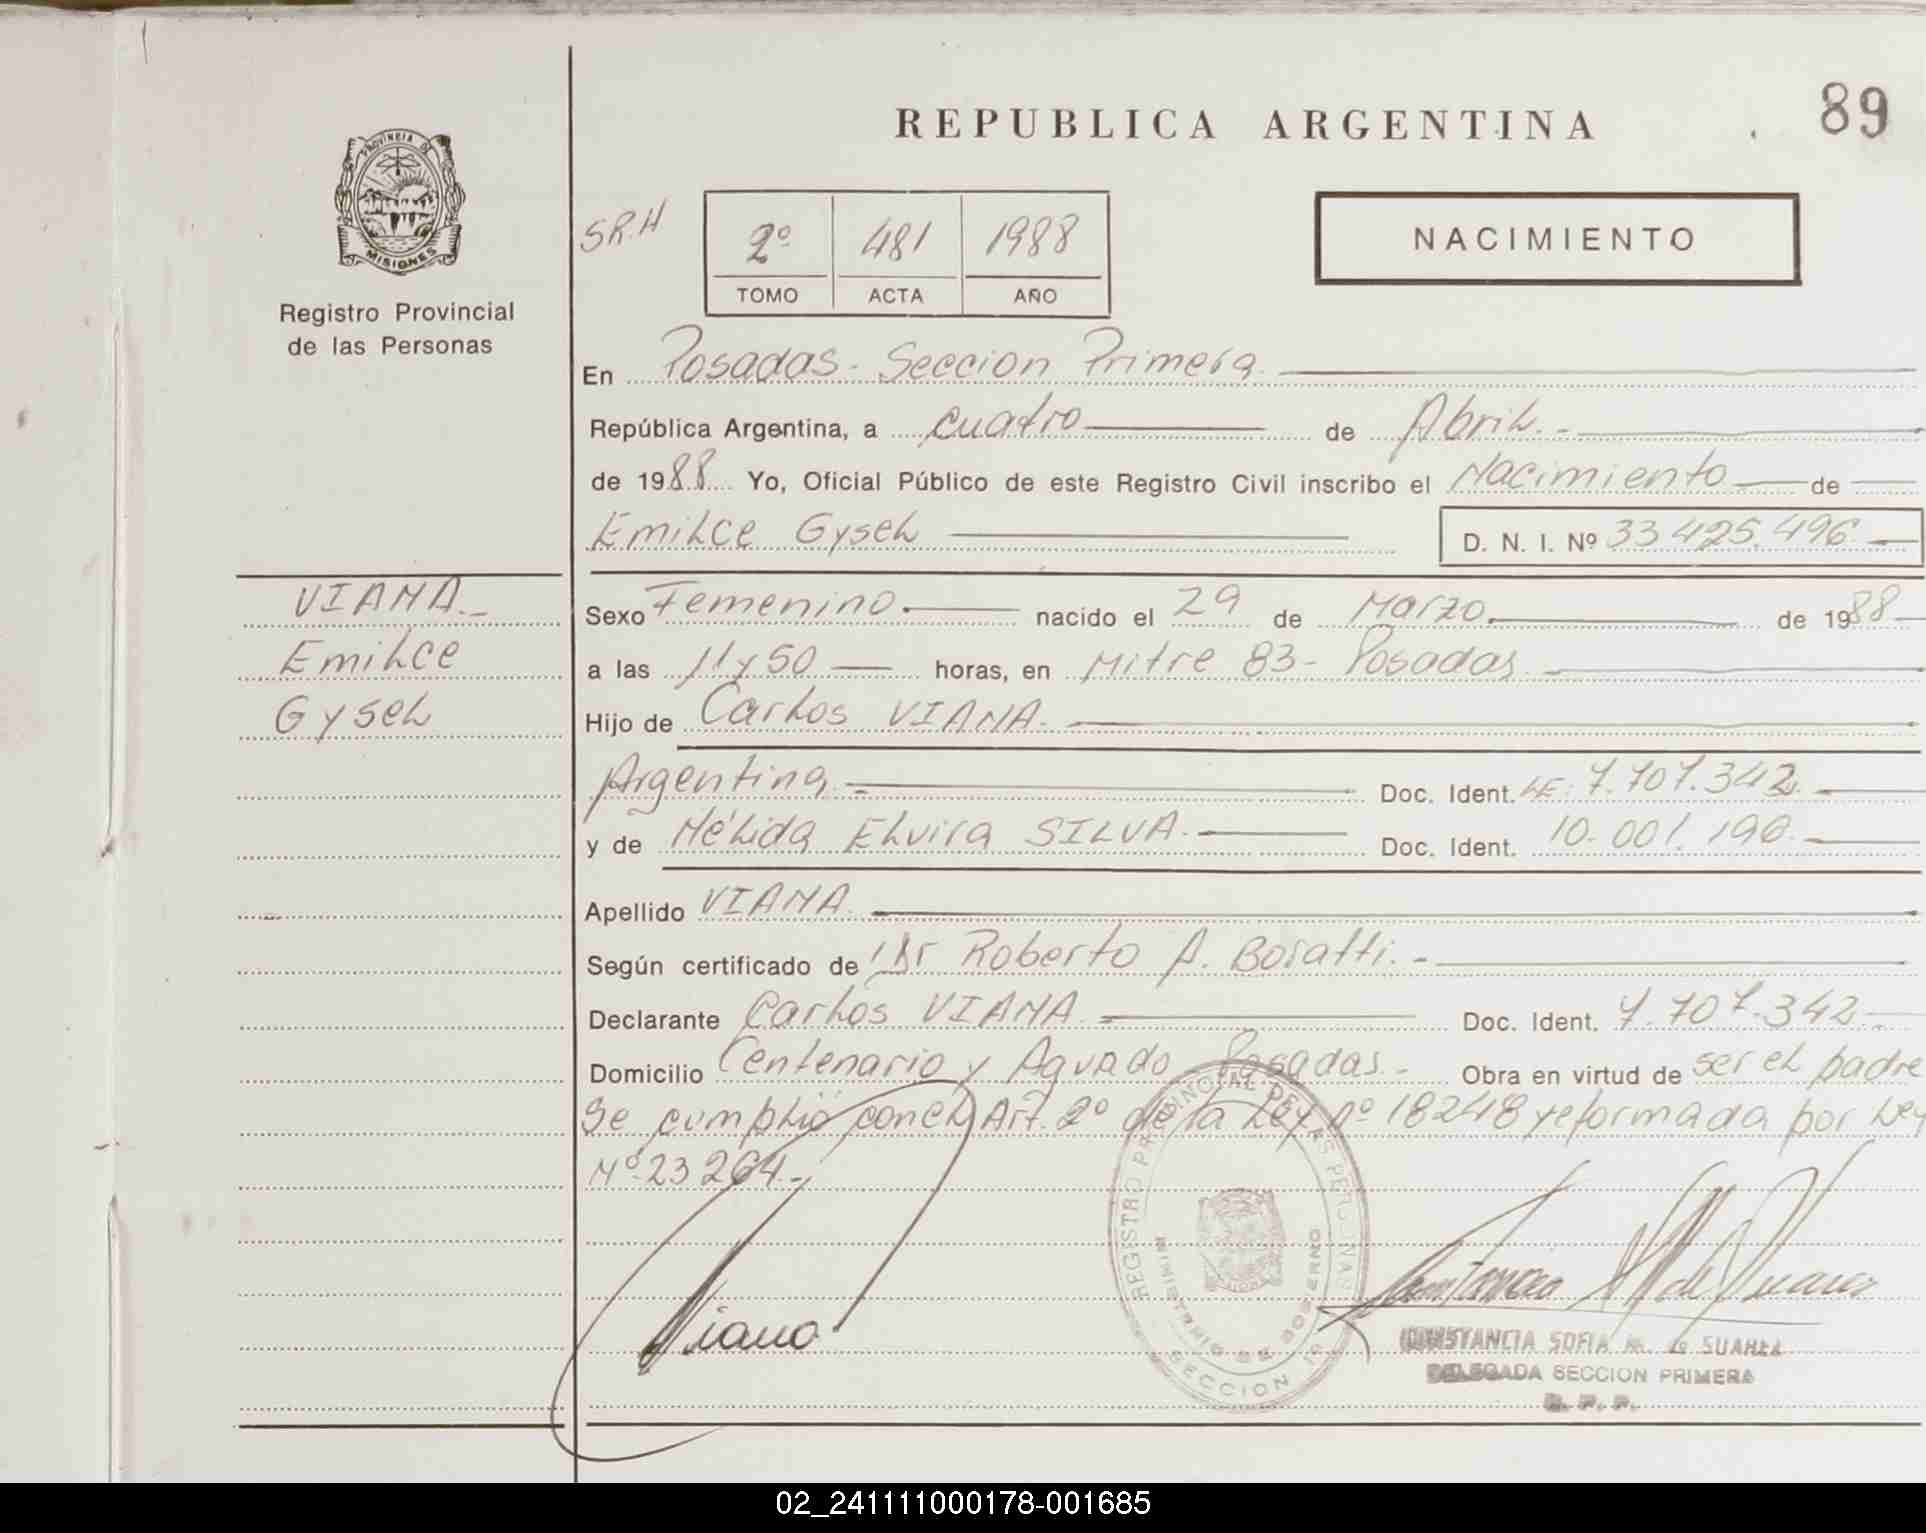 REPUBLICA ARGENTINA
89
PROVINCIA DE
MISIONES
Registro Provincial
de las Personas
SR.H
2º 481 1988
TOMO ACTA AÑO
NACIMIENTO
En Posadas - Seccion Primera.
República Argentina, a cuatro de Abril.-
de 1988 Yo, Oficial Público de este Registro Civil inscribo el Nacimiento de
Emilce Gysel D. N. I. Nº 33 425.496
VIANA.-
Emilce
Gysel
Sexo Femenino. nacido el 29 de Marzo. de 1988
a las 11 y 50 horas, en Mitre 83 - Posadas
Hijo de Carlos VIANA.
Argentina Doc. Ident. LE. 7.707.342
y de Nélida Elvira SILVA. Doc. Ident. 10.001.196
Apellido VIANA
Según certificado de Dr Roberto A. Boratti.-
Declarante Carlos VIANA Doc. Ident. 7.707.342
Domicilio Centenario y Aguado Posadas.- Obra en virtud de ser el padre
Se cumplió con el Art. 2º de la Ley nº 18248 reformada por Ley
Nº 23264.-
REGISTRO PROVINCIAL DE LAS PERSONAS
MINISTERIO DE GOBIERNO
SECCION 1º
Viana
CONSTANCIA SOFIA M. de SUAREZ
DELEGADA SECCION PRIMERA
R. P. P.
02_241111000178-001685